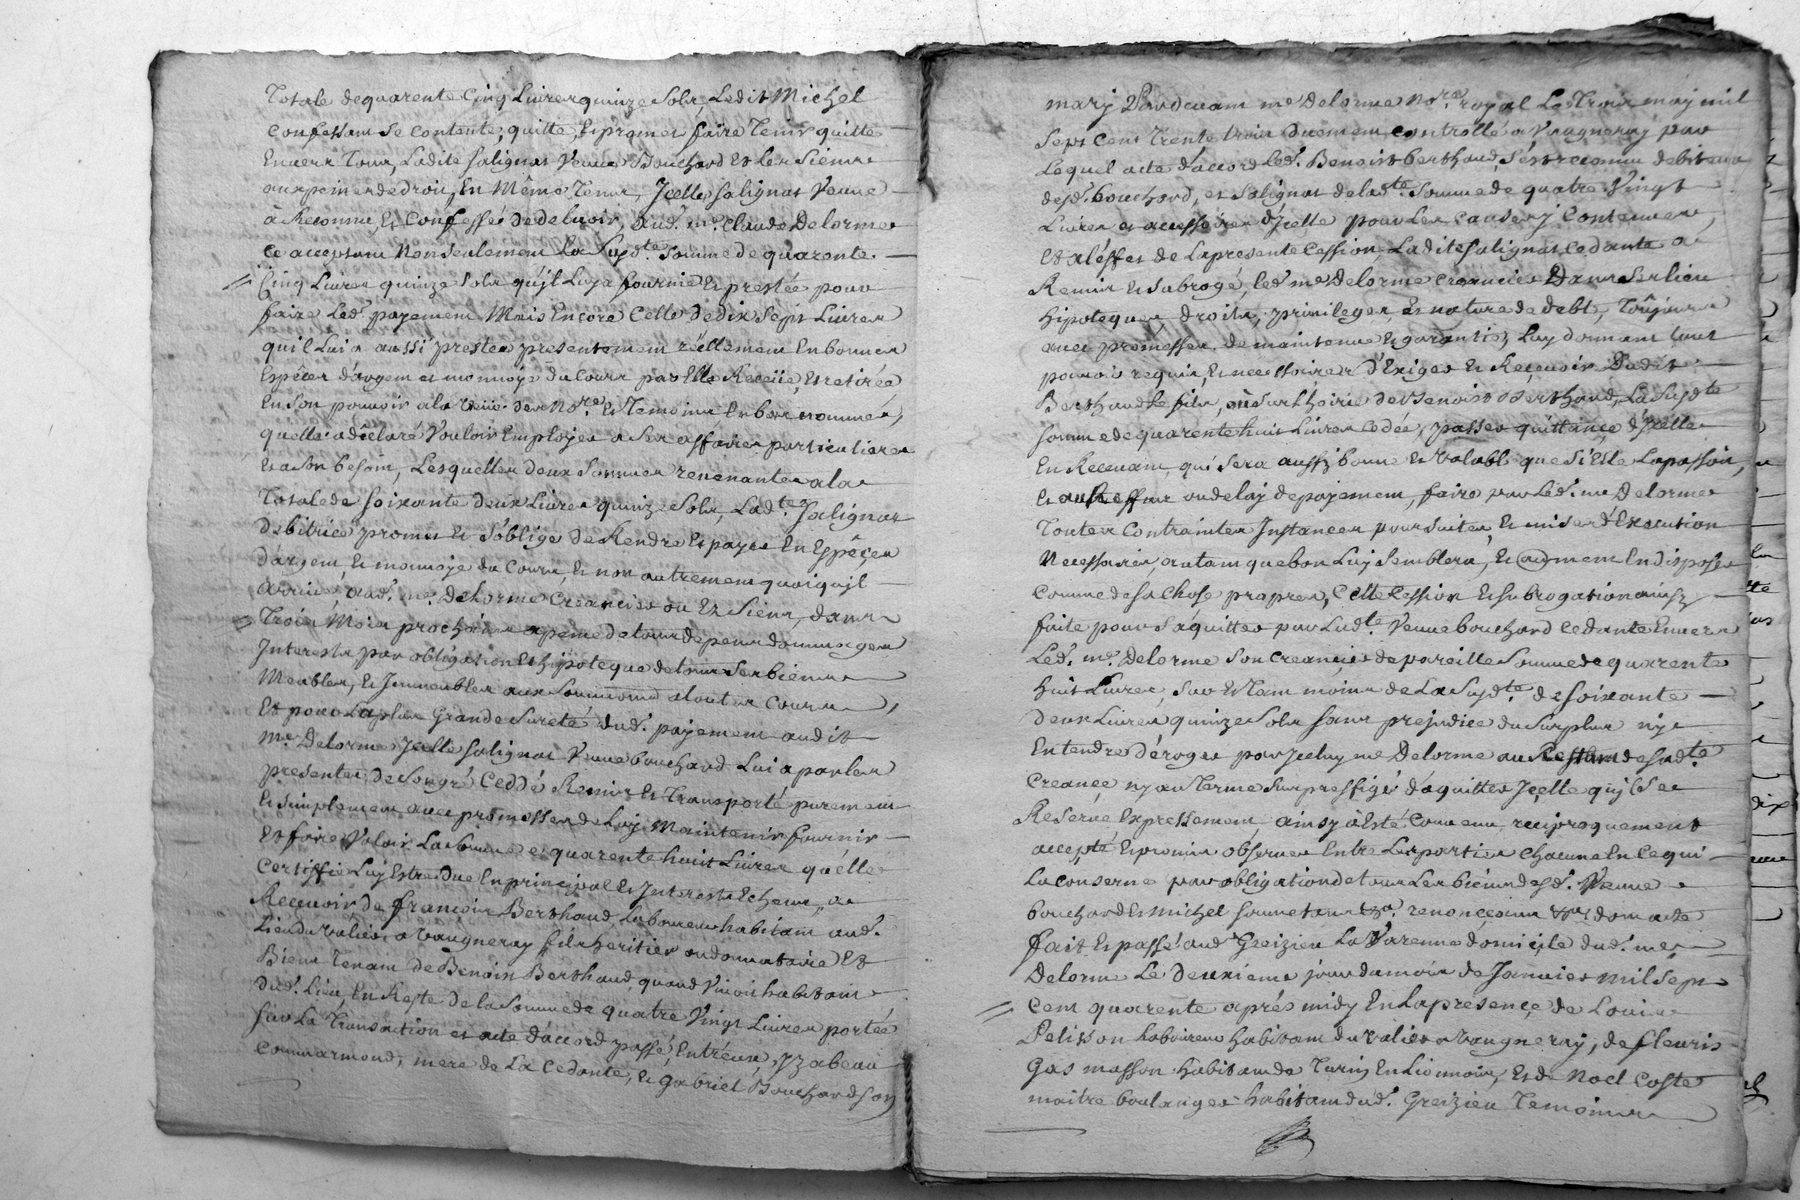 Totale de quarente Cinq Livres quinze Sols, Ledit Michel
Confessant Se Contente, quitte, Et promet faire Tenir quitte
Envers Tous, Ladite Salignat Veuve Bouchard Et Les Siens
aux peines de droit, En Même Tems, Jcelle Salignat Veuve
à Reconnu, Et Confessé de devoir, Aud. me. Claude Delorme
Ce acceptant Non Seulement La Susdte. Somme de quarente
Cinq Livres quinze Sols qu'jl Luy a fournie Et prestée pour
faire Led. payement Mais Encore Celle de dix Sept Livres
qu'il Lui a aussi prestée presentement réellement En bonnes
Espêces d'argent et monnoye du Cours par Elle Reçeüe, Et retirée
En Son pouvoir a la Veüe des Nore. Et Temoins En bas nommés,
quelle a dêclaré Vouloir Employer a Ses affaires particulieres
Et a Son besoin, Lesquelles deux Sommes revenantes a la
Totale de Soixante deux Livres quinze Sols, Ladte. Salignat
debitrice promet Et S'oblige de Rendre Et payer En Espêçes
d'argent, Et monnoye du Cours, Et non autrement quoiqu'jl
arrive, aud. me. Delorme Creancier ou Es Siens, dans
Trois Mois prochains a peine de tous depens dommages
Interests par obligation Et hipoteque de tous Ses biens
Meubles, Et Jmmeubles aux Soumissions a toutes Cours,
Et pour La plus Grande Sureté dud. payement audit
Me. Delorme Jcelle Salignat Veuve bouchard Lui a par Les
presentes, de Son gré Ceddé Remis Et Transporté purement
Et Simplement avec promesses de Luy Maintenir fournir
Et faire Valoir La Somme de quarente huit Livres quélle
Certiffie Luy Estre Due En principal Et Jnterests Echeus, a
Recevoir de françois Berthaud, Laboureur habitant aud.
Lieu du Valier, a Vaugneray fils heritier ou donnataire Et
Biens Tenant de Benoist Berthaud, quand Vivoit habitant
Dud. Lieu, En Reste de la Somme de quatre Vingt Livres portée
Sur La Transaction et acte d'accord passé, Entr'eux, Yzabeau
Commarmond, mere de La Cedante, Et Gabriel Bouchard Son
mary Pardevant me. Delorme Nore. royal Le Trois may mil
Sept Cent Trente trois duement Controllé a Vaugneray par
Lequel acte d'accord Led. Benoist berthaud S'est reconnu debiteur
desd. bouchard, et Salignat de ladte. Somme de quatre Vingt
Livres et accessoires d'Jcelle pour Les Causes y Contenues,
Et a l'éffet de La presente Cession, Ladite Salignat Cedante a
Remis Et Subrogé, led. me. Delorme Creancier Dans Ses lieu
hipoteques, droits, privileges, Et nature de debt, Toûjours
avec promesses de maintenue Et garantie, Luy donnant tout
pouvoir requis, Et necessaire d'Exiger Et Reçevoir Dudit
Berthaud Le fils, ou Sur L'hoirie de Benoist Berthaud, La Susdte
Somme de quarente huit Livres Cedée, passer quittance d'Jcelle
En Recevant, qui Sera aussi bonne Et Valable que Si Elle La passoit,
Et au Reffus ou delay de payement, faire par Led. me. Delorme
Toutes Contraintes Jnstances poursuites, Et mises d'Execution
Necessaires autant que bon Luy Semblera, Et autrement En disposer
Comme de Sa Chose propre, Cette Cession Et Subrogation ainsy
faite pour S'aquitter par Ladte. Veuve bouchard Cedante Envers
Led. me. Delorme Son Creancier de pareille Somme de quarente
huit Livres, Sur Et tant moins de La Susdte. de Soixante
deux Livres quinze Sols Sans prejudice du Surplus ny
Entendre déroger par Jceluy me Delorme au Restant de Sadte.
Creance ny au Terme Sus preffigé d'aquitter Jçelle qu'jl Se
Reserve Expressement, ainsy a Esté Convenu reciproquement
accepté Et promis observer Entre Les parties Chacune En Ce qui
La Conserne par obligation de tous Les biens desd. Veuve
bouchard Et Michel Soumettant &a. renonceant &a, dont acte
fait Et passé aud Greizieu La Varenne domicile dud. me.
Delorme Le deuxieme jour du mois de Janvier mil Sept
Cent quarente aprés midy En La presençe de Louis
Pelisson Laboureur habitant du Valier a Vaugneray, de fleuris
Gas masson habitant de Turin En Lionnois, Et de Noel Coste
maitre boulanger habitant dud. Greizieu Temoins